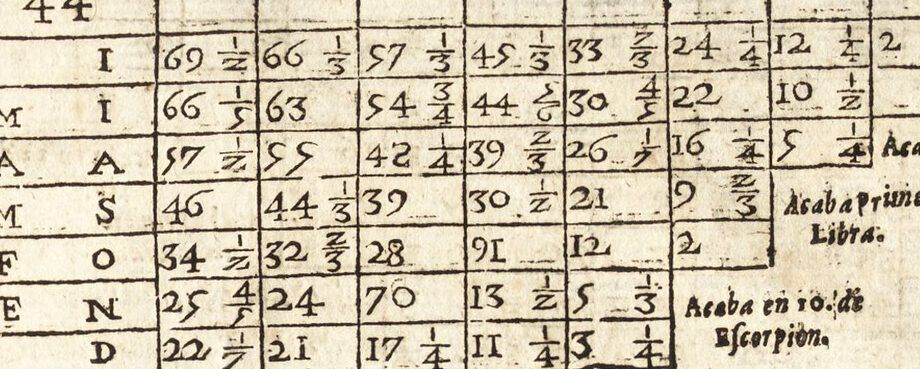 44
I 69 1/2 66 1/3 57 1/3 45 1/3 33 2/3 24 1/4 12 1/4 2
M I 66 1/5 63 54 3/4 44 5/6 30 4/5 22 10 1/2
A A 57 1/2 55 48 1/4 39 2/3 26 1/7 16 1/4 5 1/4 Aca
M S 46 44 1/3 39 30 1/2 21 9 2/3 Acaba prime
Libra.
F O 34 1/2 32 2/3 28 91 12 2
E N 25 4/5 24 70 13 1/2 5 1/3 Acaba en 10. de
Eſcorpion.
D 22 1/7 21 17 1/4 11 1/4 3 1/4